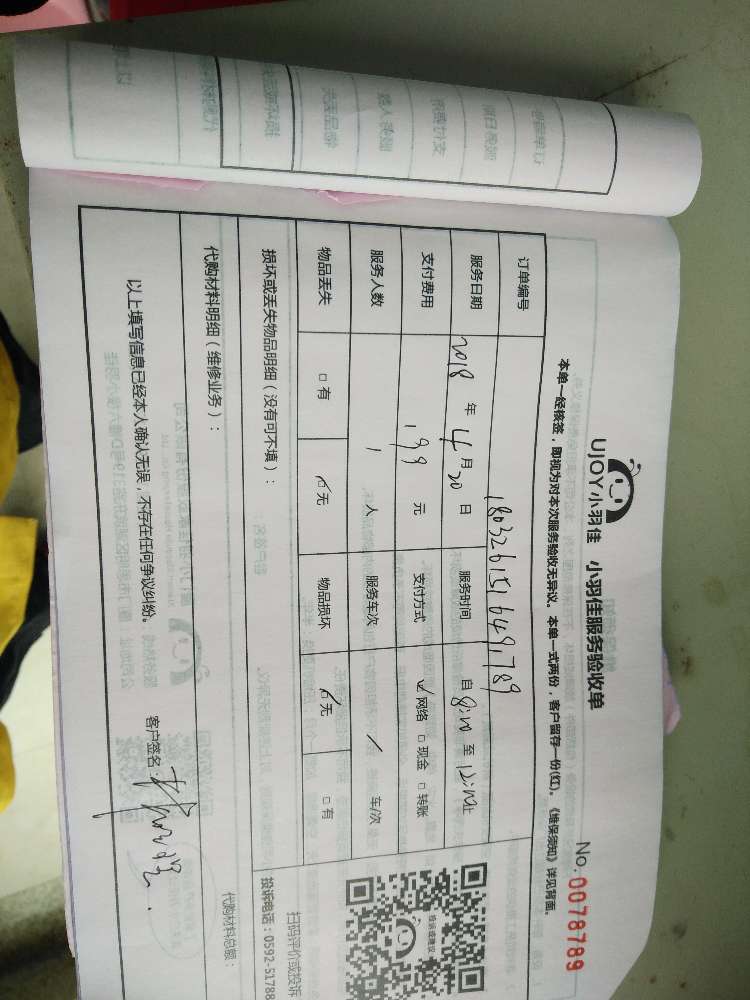 UJOY小羽佳 小羽佳服务验收单
No.0078789
本单一经核签，即视为对本次服务验收无异议。本单一式两份，客户留存一份(红)。《维保须知》详见背面。
订单编号 180326151649789
服务日期 2018 年 4 月 20 日 服务时间 自 8:00 至 12:00 止
支付费用 199 元 支付方式 ☑网络 □现金 □转账
服务人数 1 人 服务车次 / 车/次
物品丢失 □有 ☑无 物品损坏 ☑无 □有
损坏或丢失物品明细（没有可不填）：
代购材料明细（维修业务）：
代购材料总额：
以上填写信息已经本人确认无误，不存在任何争议纠纷。
客户签名：
投诉建议
扫码评价或投诉
投诉电话：0592-51788